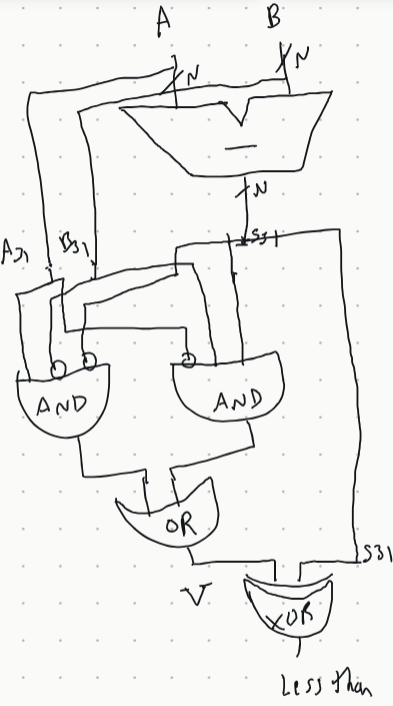 A B
N N
—
N
A31 B31 S31
AND AND
OR
S31
V
XOR
Less than